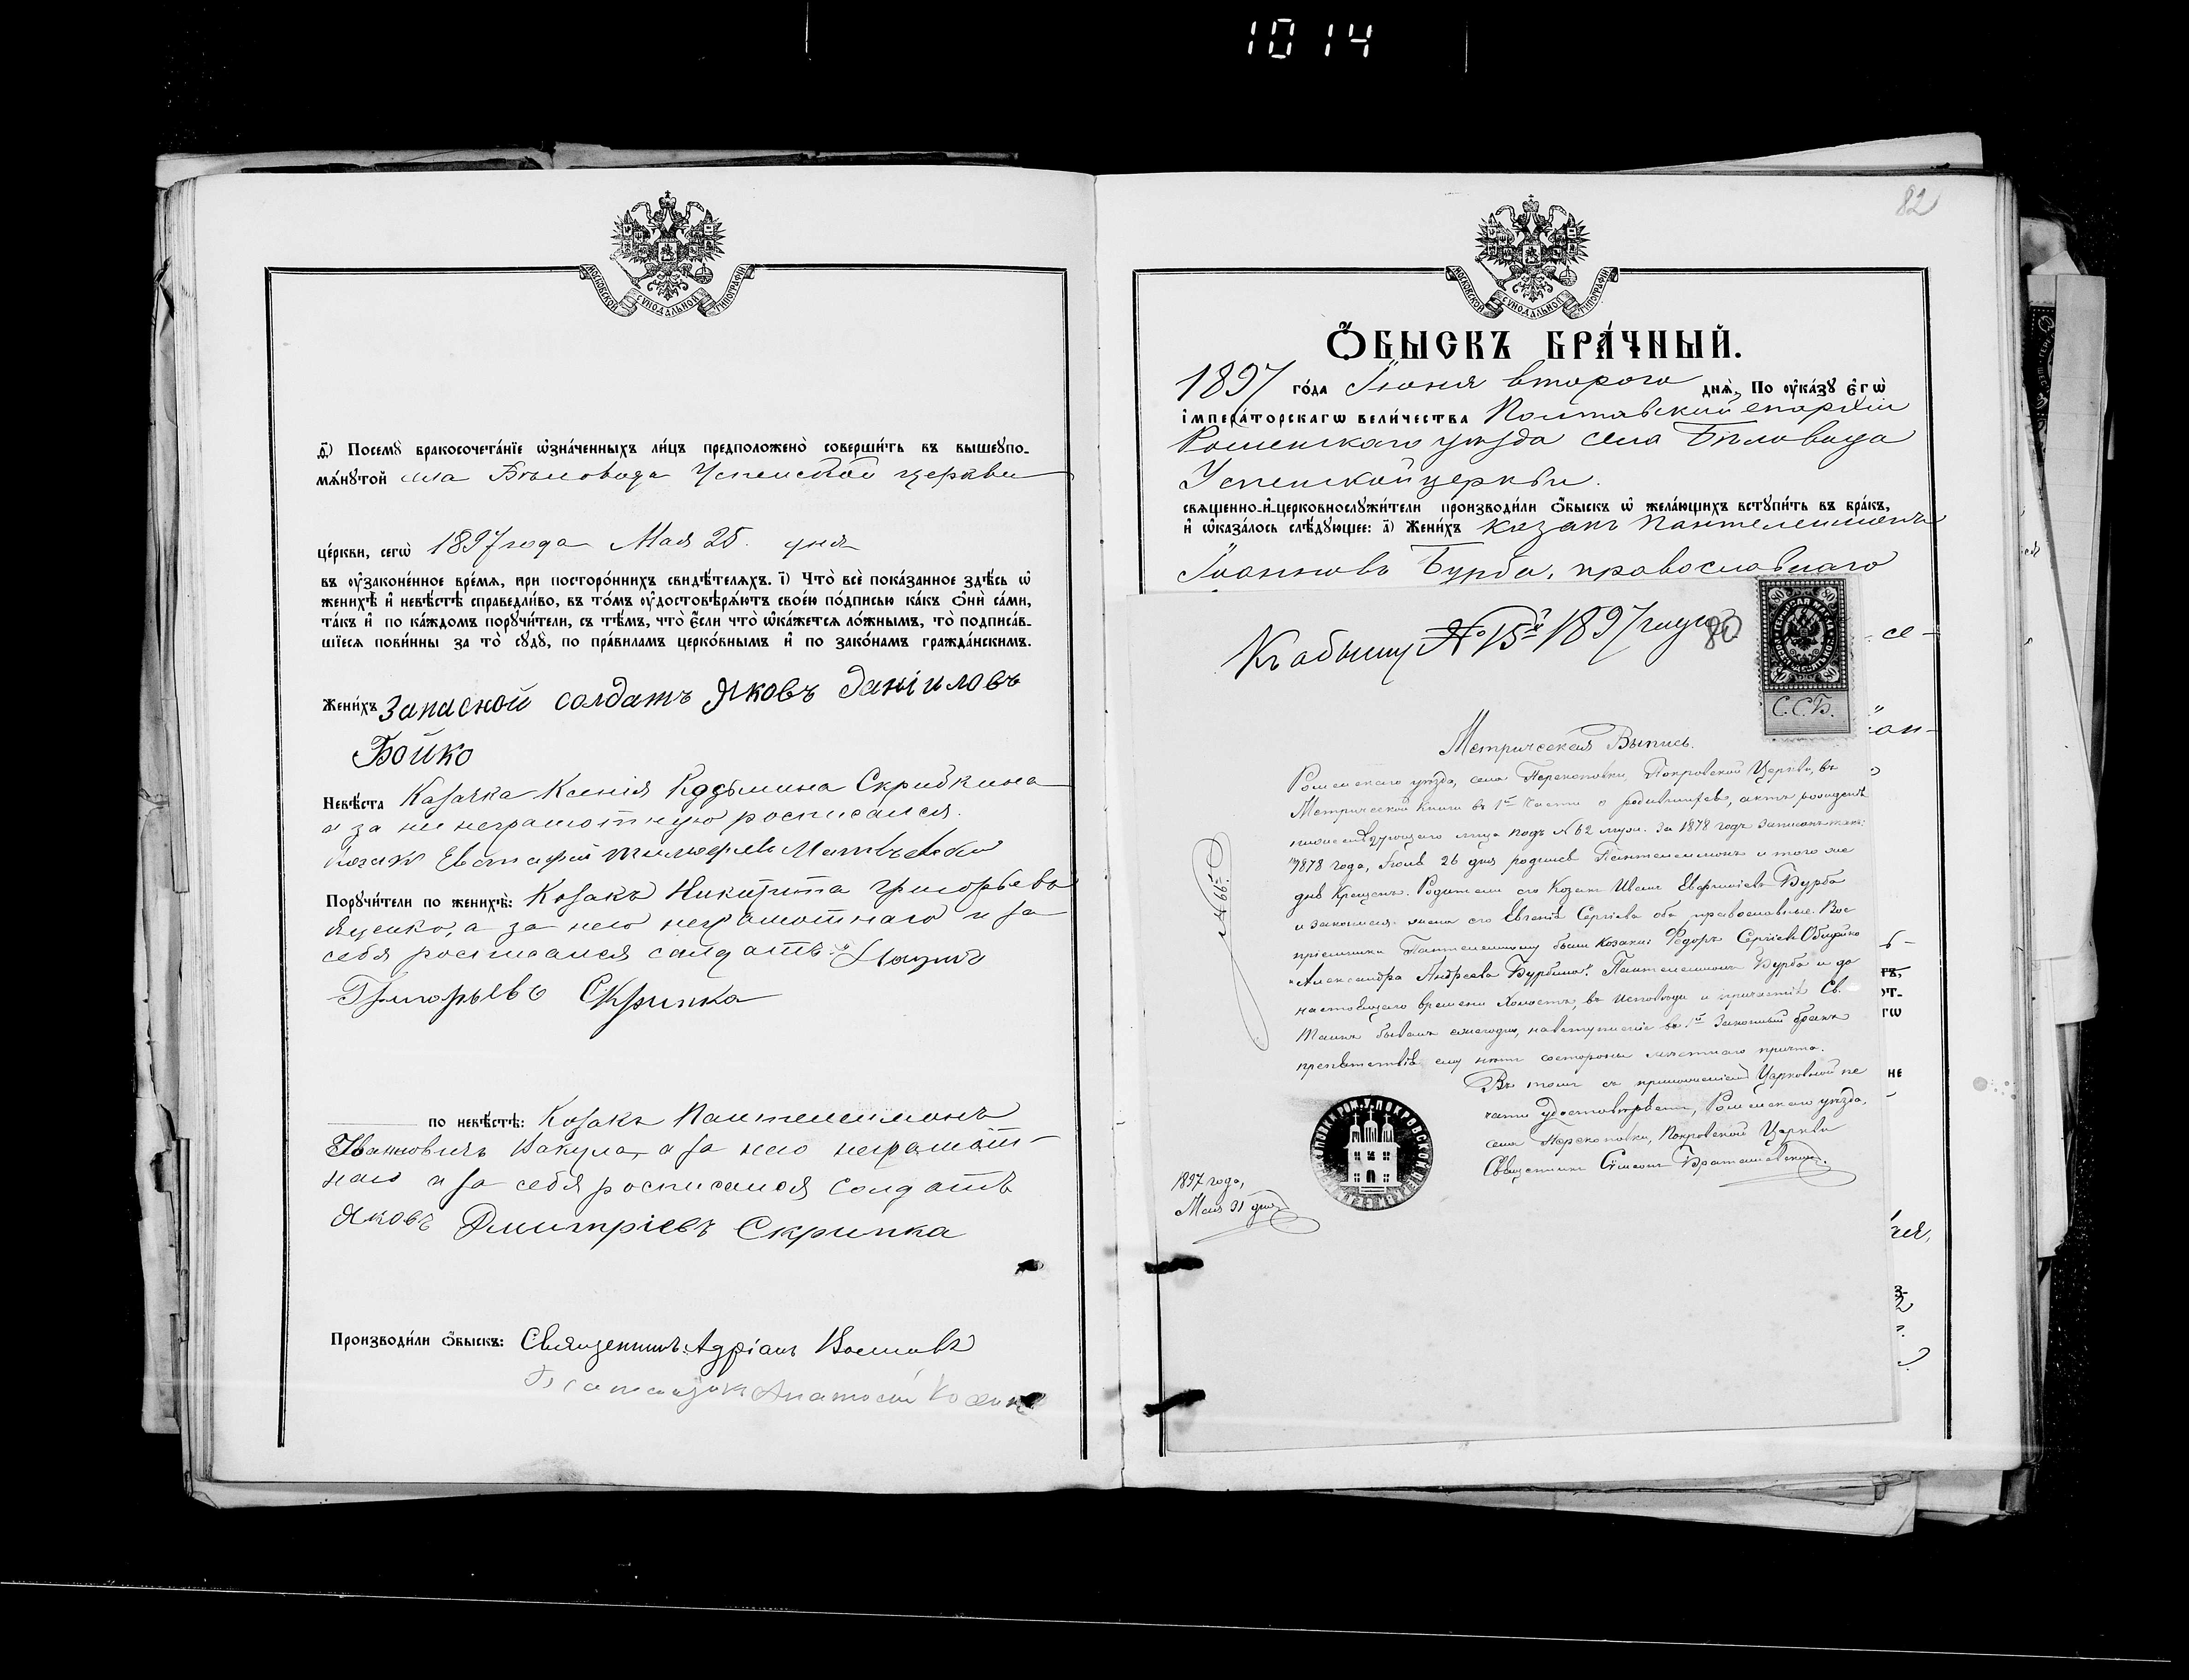 1014
МОСКОВСКОЙ СѴНОДАЛЬНОЙ ТИПОГРАФІИ
д҃) Посемꙋ̀ бракосочета́нїе ѡ҆зна́ченныхъ ли́цъ предположено̀ соверши́ть въ вышеꙋпо-
мѧ́нꙋтой села Бѣловода Успенской церкви
це́ркви, сегѡ̀ 1897 года Мая 25. дня
въ ᲂу҆законе́нное вре́мѧ, при посторо́ннихъ свидѣ́телѧхъ. і҃) Что̀ всѐ пока́занное здѣ́сь ѡ҆
женихѣ̀ и҆ невѣ́стѣ справедли́во, въ то́мъ ᲂу҆достовѣрѧ́ютъ свое́ю по́дписью ка́къ ѻ҆нѝ са́ми,
та́къ и҆ по ка́ждомъ порꙋчи́тели, съ тѣ́мъ, что̀ є҆́сли что̀ ѡ҆ка́жетсѧ ло́жнымъ, то̀ подписа́в-
шїесѧ пови́нны за то̀ сꙋдꙋ̀, по пра́виламъ церко́внымъ и҆ по зако́намъ гражда́нскимъ.
Жени́хъ Запасной солдатъ Яковъ Даніиловъ
Бойко
Невѣ́ста Казачка Ксенія Козьмина Скрипкина
а за ней неграмотную росписался
козакъ Евстафій Матвѣевъ
Порꙋчи́тели по женихѣ̀: Козакъ Никита Григорьевъ
Яценко, а за него неграмотнаго и за
себя росписался солдатъ Наумъ
Григорьевъ Скрипка
по невѣ́стѣ: Козакъ Пантелеимонъ
Ивановичъ Вакула, а за него неграмот-
наго и за себя росписался Солдатъ
Яковъ Димитріевъ Скрипка
Производи́ли ѻ҆́быскъ: Священникъ Адріанъ
Псаломщикъ Анатолій
82
МОСКОВСКОЙ СѴНОДАЛЬНОЙ ТИПОГРАФІИ
Ѻ҆́БЫСКЪ БРА́ЧНЫЙ.
1897 го́да Іюня второго днѧ̀, По ᲂу҆ка́зꙋ є҆гѡ̀
і҆мпера́торскагѡ вели́чества Полтавской епархіи
Роменскаго уѣзда села Бѣловода
Успенской церкви.
свѧщенно-и҆-церковнослꙋжи́тели производи́ли ѻ҆́быскъ ѡ҆ жела́ющихъ встꙋпи́ть въ бра́къ,
и҆ ѡ҆каза́лось слѣ́дꙋющее: а҃) Жени́хъ козакъ Пантелеимонъ
Іоанновъ Бурба, православнаго
Къ обыску № 15й 1897 года
80
80 80
С.С.Б.
Метрическая Выпись.
Роменскаго уѣзда, села Перекоповки, Покровской Церкви, въ
Метрической книгѣ въ 1й части о родившихся, актъ рожденія
нижеслѣдующаго лица подъ № 62 муж. за 1878 годъ записанъ такъ:
"1878 года, Іюля 26 дня родился Пантелеимонъ и того же
дня Крещенъ. Родители его Козакъ Иванъ Бурба
и законная жена его Евгенія Сергіева оба православные. Вос-
пріемники Пантелеимону были Козаки: Федоръ Сергіевъ
Александра Андреева Бурбина". Пантелеимонъ Бурба и до
настоящаго времени Холостъ, въ исповѣди и причастіи Св.
Таинъ бываетъ ежегодно, на вступленіе въ 1й Законный бракъ
препятствія ему нѣтъ со стороны мѣстнаго причта.
Въ томъ съ приложеніемъ Церковной пе-
чати удостовѣряетъ, Роменскаго уѣзда,
села Перекоповки, Покровской Церкви
Священникъ Симеонъ
№ 66й
1897 года,
Мая 31 дня